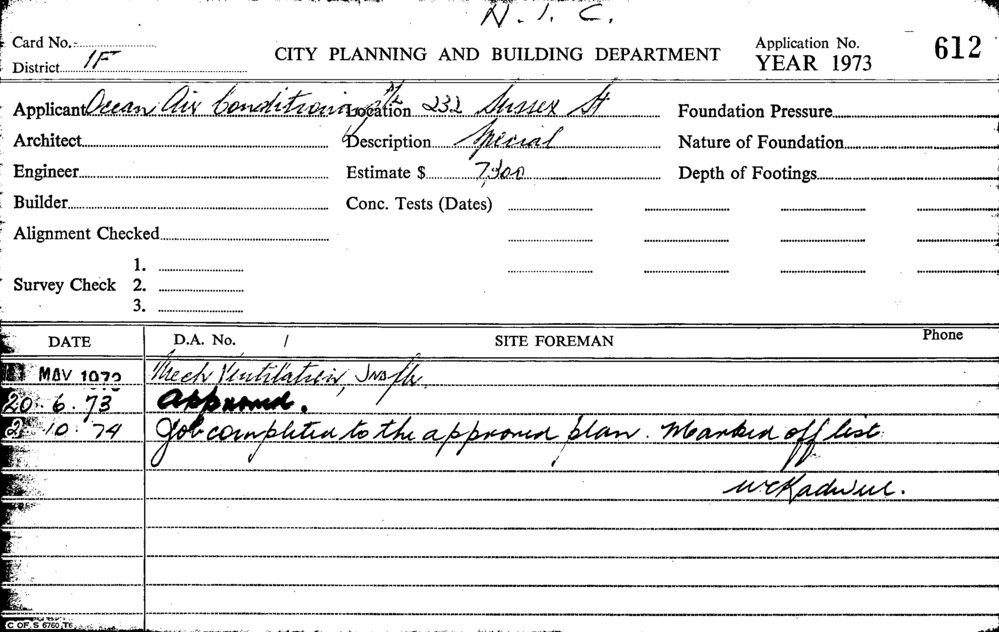 N. I. C.
Card No.
District 1F
CITY PLANNING AND BUILDING DEPARTMENT
Application No.
YEAR 1973
612
Applicant Ocean Air Conditioning P/L Location 232 Sussex St Foundation Pressure
Architect Description Special Nature of Foundation
Engineer Estimate $ 7,300 Depth of Footings
Builder Conc. Tests (Dates)
Alignment Checked
1.
Survey Check 2.
3.
DATE D.A. No. / SITE FOREMAN Phone
MAY 1973 Mech Ventilation,
20. 6. 73 Approved.
2. 10. 74 Job completed to the approved plan. Marked off list.
C OF. S 6760, T6